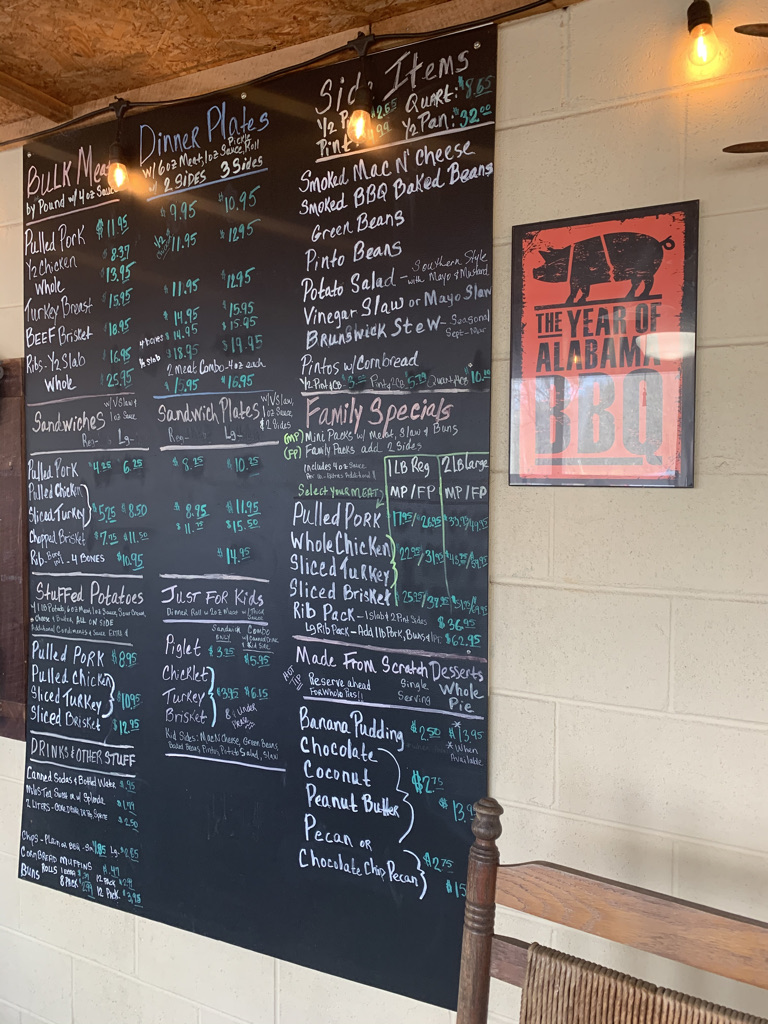 BULK Meat
by Pound w/ 4oz Sauce
Pulled Pork $11.95
1/2 Chicken $8.37
Whole $13.95
Turkey Breast $15.95
BEEF Brisket $18.95
Ribs - 1/2 Slab $16.95
Whole $25.95
Dinner Plates
w/ 6oz Meat, 1oz Sauce, Pickle, Roll
w/ 2 SIDES 3 Sides
$9.95 $10.95
$11.95 $12.95
$11.95 $12.95
$14.95 $15.95
4 bones $14.95 $15.95
1/2 Slab $18.95 $19.95
2 Meat Combo - 4oz each
$15.95 $16.95
Side Items
1/2 Pint $2.65 Quart: $8.65
Pint 1/2 Pan: $32.00
Smoked Mac N' Cheese
Smoked BBQ Baked Beans
Green Beans
Pinto Beans
Potato Salad - Southern Style
with Mayo & Mustard
Vinegar Slaw or Mayo Slaw
Brunswick Stew - Seasonal
Sept-Mar
Pintos w/ Cornbread
1/2 Pint 1CB Pint 2CB 5.79 Quart 4CB $10.
Sandwiches w/ V Slaw &
1oz Sauce
Reg- Lg-
Pulled Pork $4.25 $6.25
Pulled Chicken
Sliced Turkey $5.75 $8.50
Chopped Brisket $7.75 $11.50
Rib, Bone in! - 4 BONES $10.95
Sandwich Plates w/ V Slaw,
1oz Sauce
& 2 Sides
Reg- Lg-
$8.25 $10.25
$8.95 $11.95
$11.25 $15.50
$14.95
Family Specials
(MP) Mini Packs w/ Meat, Slaw & Buns
(FP) Family Packs add 2 Sides
includes 4oz Sauce
Per lb - Extras Additional
1 LB Reg 2 LB Large
Select Your MEAT MP/FP MP/FP
Pulled Pork 17.95/26.95
Whole Chicken
Sliced Turkey 22.95/31.95
Sliced Brisket
Rib Pack - 1 Slab & 2 Pint Sides $36.95
Lg Rib Pack - Add 1 lb Pork, Buns & $62.95
Stuffed Potatoes
w/ 1 lb Potato, 6oz Meat, 1oz Sauce, Sour Cream,
Cheese & Butter, ALL ON SIDE
Additional Condiments & Sauce EXTRA
Pulled Pork $8.95
Pulled Chicken
Sliced Turkey $10.95
Sliced Brisket $12.95
Just For Kids
Dinner Roll w/ 2oz Meat w/ 1oz Sauce
Sandwich Only Combo
w/ Canned Drink
& Kid Side
Piglet $3.25 $5.95
Chicklet
Turkey $3.95 $6.15
Brisket
8 & under Please
Kid Sides: Mac N Cheese, Green Beans
Baked Beans, Pintos, Potato Salad, Slaw
Made From Scratch Desserts
HOT TIP Reserve ahead
For Whole Pies!!
Single
Serving
Whole
Pie
Banana Pudding $2.50 $13.95
*When
Available
Chocolate
Coconut $2.75
Peanut Butter $13.9
Pecan or
Chocolate Chip Pecan $2.75
$15
DRINKS & OTHER STUFF
Canned Sodas & Bottled Water $.95
Milo's Tea, Sweet or w/ Splenda
2 LITERS - $2.50
Chips - Plain or BBQ - Sm Lg -
Cornbread Muffins
Buns Rolls 12 Pack
8 Pack 12 Pack $3.98
THE YEAR OF
ALABAMA
BBQ